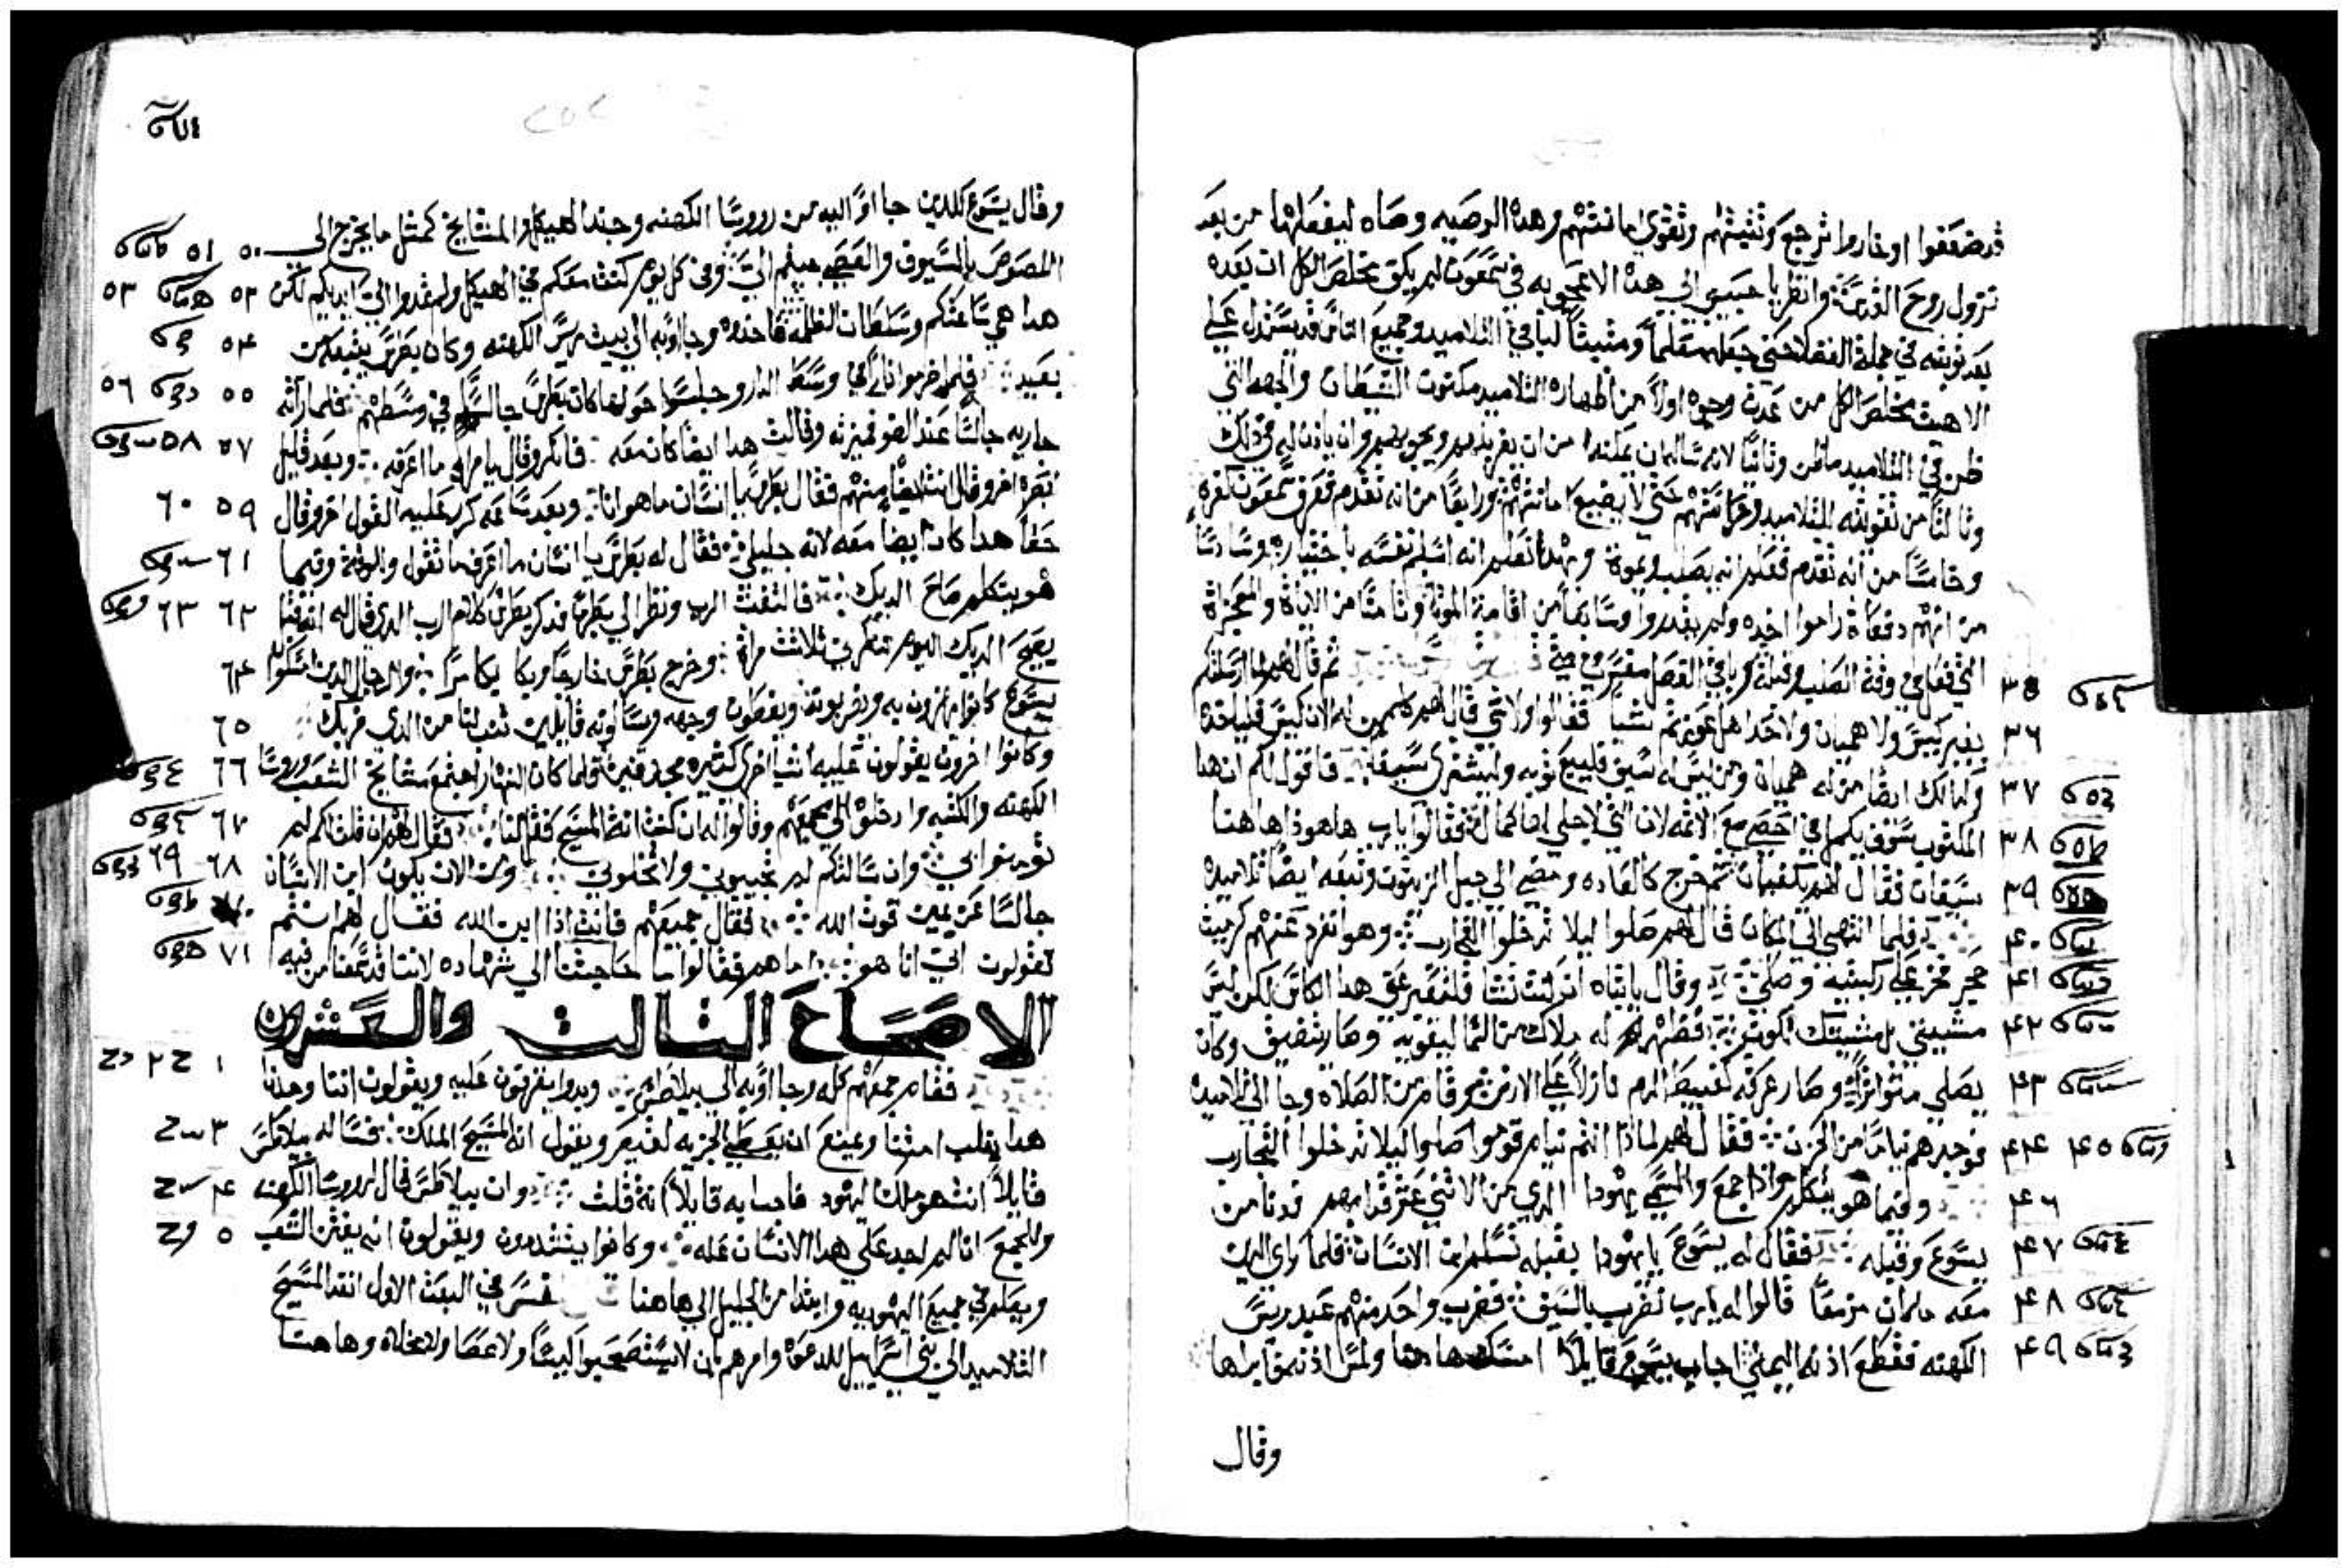 قد ضعفوا او خاروا ترجع وتثبتهم وتقوي امانتهم وهده الوصيه وصاه ليفعلها من بعد
نزول روح القدس وانظر يا حبيبي الي هده الاعجوبه في شمعون لم يكن مخلص الكل ان يعده
بعد توبته في جملة الفضلا حتي جعله معلماً ومثبتاً لباقي التلاميد وجميع الناس قد يستدل علي
الاهيت مخلص الكل من عدت وجوه اولاً من اظهاره التلاميد مكنون الشيطان والجهه التي
ظن في التلاميد ما ظن وثانياً لانه سال ان يمكنه من ان يغربلهم ويجربهم وان يادن له في دلك
وثالثاً من تقويته للتلاميد وحراستهم حتي لا يضيع امانتهم ورابعاً من انه تقدم فعرف شمعون بكفره
وخامساً من انه تقدم فعلم انه يصلب ويموت وبهدا تعلم انه اسلم نفسه باختياره وسادساً
من انهم دفعات راموا اخده ولم يقدروا وسابعاً من اقامة الموتا وثامناً من الايات والمعجزات
التي فعلها في وقت الصلب وقبله وباقي الفصل مفسر في متي ثم قال لهم لما ارسلتكم ٣٥
بغير كيس ولا هميان ولا حدا هل عوزتم شياً فقالوا ولا شي قال لهم لكن من له الان كيس فلياخده ٣٦
وكدالك ايضا من له هميان ومن ليس له سيف فليبيع ثوبه وليشتري سيفا فاقول لكم ان هدا ٣٧
المكتوب سوف يكمل في احصي مع الاثمه لان التي لاجلي لها كمال فقالوا يا رب ها هودا هاهنا ٣٨
سيفان فقال لهم يكفيان ثم خرج كالعاده ومضي الي جبل الزيتون وتبعه ايضاً تلاميده ٣٩
فلما انتهي الي المكان قال لهم صلوا ليلا تدخلوا التجارب وهو انفرد عنهم كرميت ٤٠
حجر فخر علي ركبتيه وصلي وقال يا ابتاه ان كنت تشا فلتعبر عني هدا الكاس لكن ليس ٤١
مشييتي بل مشييتك تكون فظهر له ملاك من السما ليقويه وصار بتضيق وكان ٤٢
يصلي متواتراً وصار عرقه كعبيط الدم نازلاً علي الارض وقام من الصلاه وجا الي تلاميده ٤٣
فوجدهم نياماً من الحزن فقال لهم لمادا انتم نيام قوموا صلوا ليلا تدخلوا التجارب ٤٤ ٤٥
وفيما هو يتكلم وادا جمع والمسمي يهودا الدي من الاثني عشر قدامهم فدنا من ٤٦
يسوع وقبله فقال له يسوع يا يهودا بقبله تسلم ابن الانسان فلما راي الدين ٤٧
معه ما كان مزمعاً قالوا له يا رب نضرب بالسيف فضرب واحد منهم عبد رييس ٤٨
الكهنه فقطع ادنه اليمني اجاب يسوع قايلاً امسك هاهنا ولمس ادنه فابراها ٤٩
وقال
وقال يسوع للدين جااوا اليه من رووسا الكهنه وجند الهيكل والمشايخ كمثل ما يخرج الي ٥٠ ٥١
اللصوص بالسيوف والعصي جيتم الي وفي كل يوم كنت معكم في الهيكل ولم تمدوا الي ايديكم لكن ٥٢ ٥٣
هدا هي ساعتكم وسلطان الظلمه فاخدوه وجااوا به الي بيت رييس الكهنه وكان بطرس يتبعه من ٥٤
بعيد فلما اضرموا ناراً في وسط الدار وجلسوا حولها كان بطرس جالساً في وسطهم فلما راته ٥٥ ٥٦
جاريه جالساً عند الضو فميزته وقالت هدا ايضاً كان معه فانكر وقال يا مراه ما اعرفه وبعد قليل ٥٧ ٥٨
نضره اخر وقال انت ايضاً منهم فقال بطرس يا انسان ما هو انا وبعد ساعه كرر عليه القول اخر وقال ٥٩ ٦٠
حقاً هدا كان ايضا معه لانه جليلي فقال له بطرس يا انسان ما اعرف ما تقول وللوقت وفيما ٦١
هو يتكلم صاح الديك فالتفت الرب ونظر الي بطرس فدكر بطرس كلام الرب الدي قال له انه قبل ٦٢ ٦٣
يصيح الديك اليوم تنكرني ثلاثت مرات وخرج بطرس خارجاً وبكا بكا مراً والرجال الدين امسكوا ٦٤
يسوع كانوا يهزون به ويضربونه ويغطون وجهه ويسالونه قايلين تنب لنا من الدي ضربك ٦٥
وكانوا اخرون يقولون عليه اشيا اخري كثيره مجدفين ولما كان النهار اجتمع مشايخ الشعب ورووسا ٦٦
الكهنه والكتبه وادخلوه الي مجمعهم وقالوا له ان كنت انت المسيح فقل لنا فقال لهم ان قلت لكم لم ٦٧
تومنوا بي وان سالتكم لم تجيبوني ولا تخلوني ومن الان يكون ابن الانسان ٦٨ ٦٩
جالساً عن يمين قوت الله فقال جميعهم فانت ادا ابن الله فقال لهم انتم ٧٠
تقولون اني انا هو اما هم فقالوا ما حاجتنا الي شهاده لاننا قد سمعنا من فيه ٧١
الاصحاح التالت والعشرون
فقام جمعهم كله وجااوا به الي بيلاطس وبدوا يقرفون عليه ويقولون اننا وجدنا ١ ٢
هدا يقلب امتنا ويمنع ان يعطي الجزيه لقيصر ويقول انه المسيح الملك فساله بيلاطس ٣
قايلاً انت هو ملك اليهود فاجابه قايلاً انت قلت وان بيلاطس قال لرووسا الكهنه ٤
وللجمع انا لم اجد علي هدا الانسان عله وكانوا يتشددون ويقولون انه يفتن الشعب ٥
ويعلم في جميع اليهوديه وابتدا من الجليل الي هاهنا فسر في البعث الاول انفد المسيح
التلاميد الي بني اسراييل للدعوه وامرهم بان لا يستصحبوا كيساً ولا عصا ولا مخلاه وهاهنا